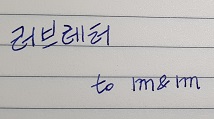 러브레터
to m&m